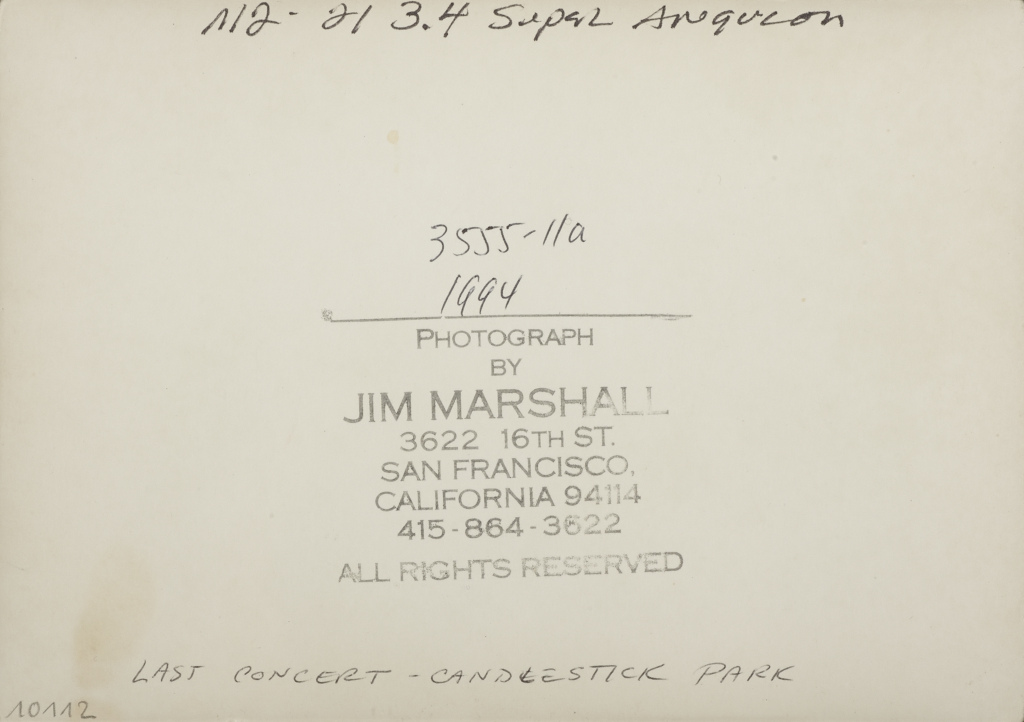 M2 - 21 3.4 Super Angulon
3555-11a
1994
PHOTOGRAPH
BY
JIM MARSHALL
3622 16TH ST.
SAN FRANCISCO,
CALIFORNIA 94114
415-864-3622
ALL RIGHTS RESERVED
LAST CONCERT - CANDLESTICK PARK
10112